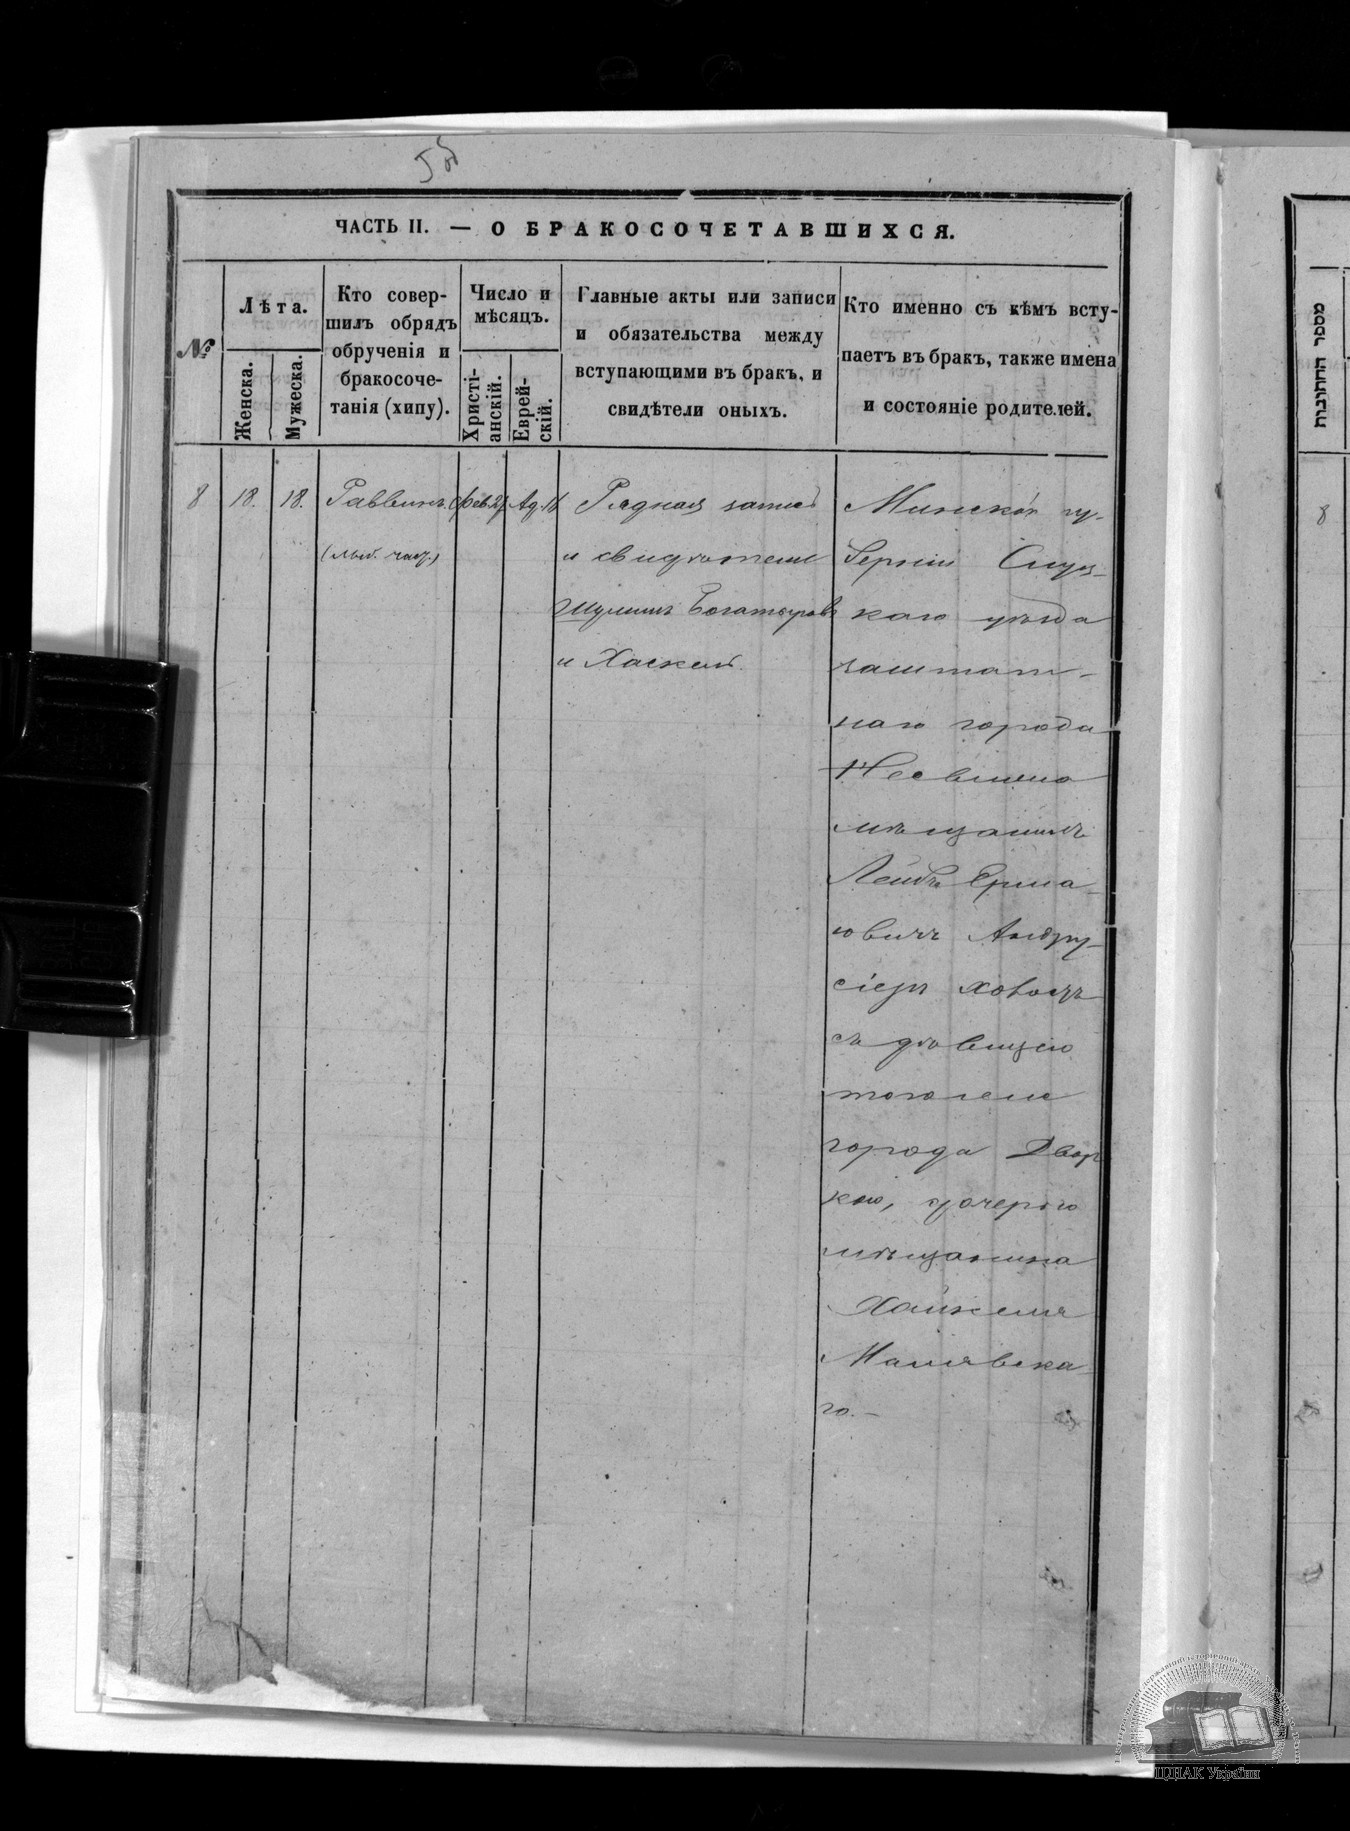 ЧАСТЬ II. — О БРАКОСОЧЕТАВШИХСЯ.
№
Лѣта.
Женска.
Мужеска.
Кто совер-
шилъ обрядъ
обрученія и
бракосоче-
танія (хипу).
Число и
мѣсяцъ.
Христі-
анскій.
Еврей-
скій.
Главные акты или записи
и обязательства между
вступающими въ бракъ, и
свидѣтели оныхъ.
Кто именно съ кѣмъ всту-
паетъ въ бракъ, также имена
и состояніе родителей.
8
18.
18.
Раввинъ.
Фев. 27
Ад. 16
Рядная запись
и свидѣтели
Шулимъ Богатыровъ
и Хаскель.
Минской гу-
берніи Слуц-
каго уѣзда
заштат-
наго города
Несвижа
мѣщанинъ
Лейбъ
овичъ
съ дѣвицею
того же
города Двор-
кою, дочерью
мѣщанина
Хаикеля
Малявска-
го.—
מספר החתונות
8
ЦДІАК України